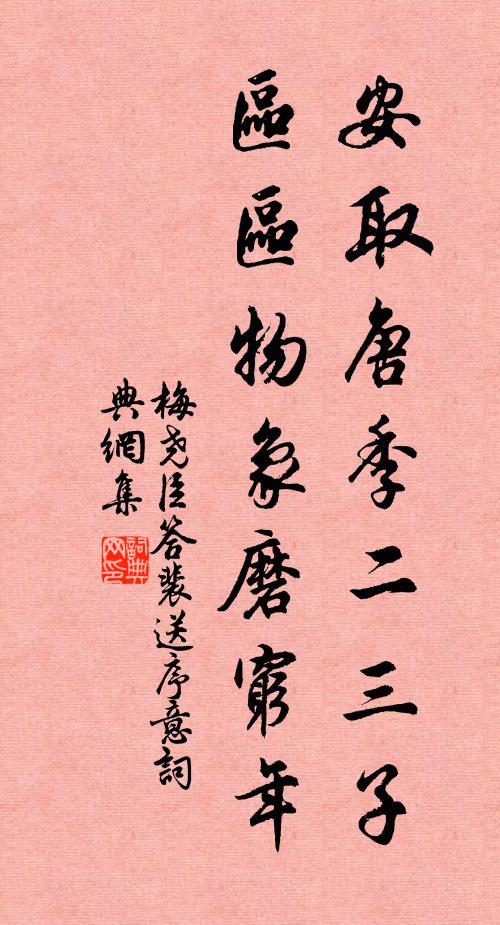 安取唐季二三子
區區物象磨窮年
梅堯臣答裴送序意詞
典網集
詞典
網印